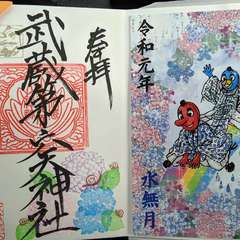 奉拝
武蔵第六天神社
令和元年
水無月